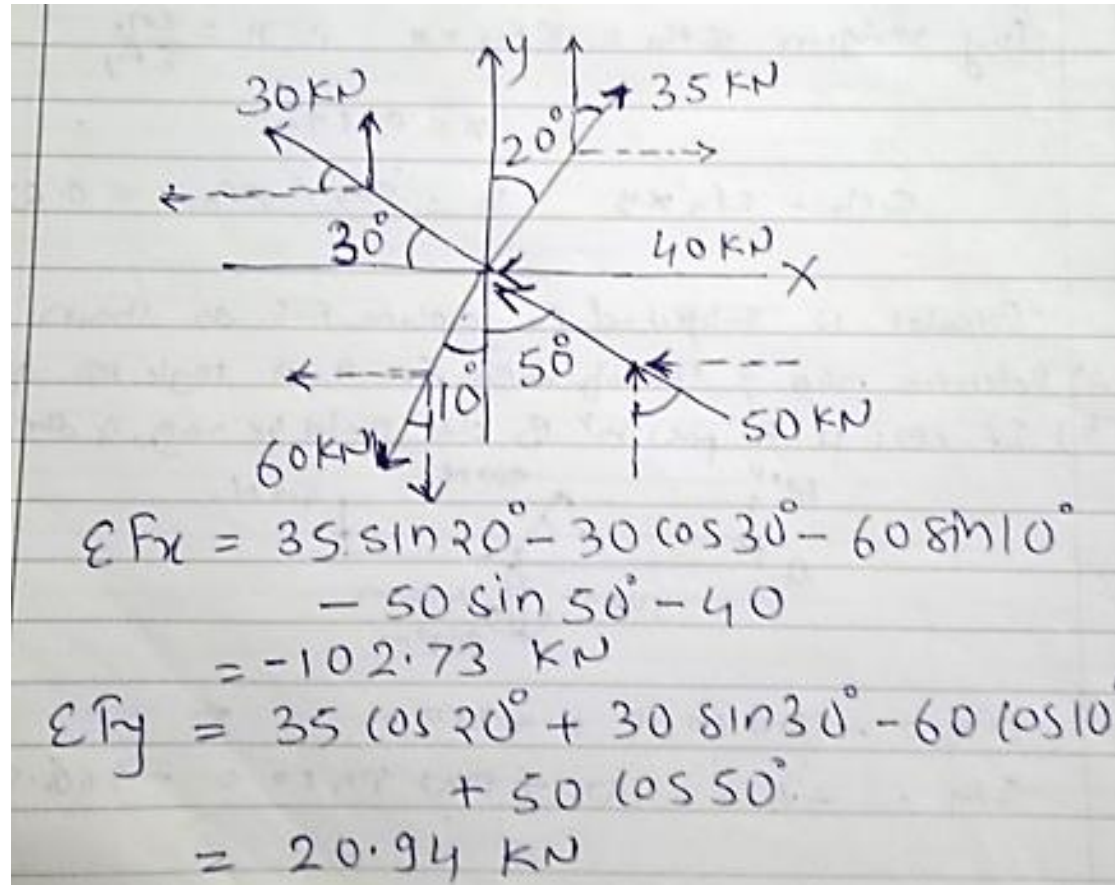 y
30KN
35 KN
20°
30°
40 KN X
10° 50°
60KN
50 KN
ΣFx = 35 sin20° - 30 cos30° - 60 sin10°
- 50 sin 50° - 40
= -102.73 KN
ΣFy = 35 cos 20° + 30 sin30° - 60 cos10°
+ 50 cos 50°
= 20.94 KN